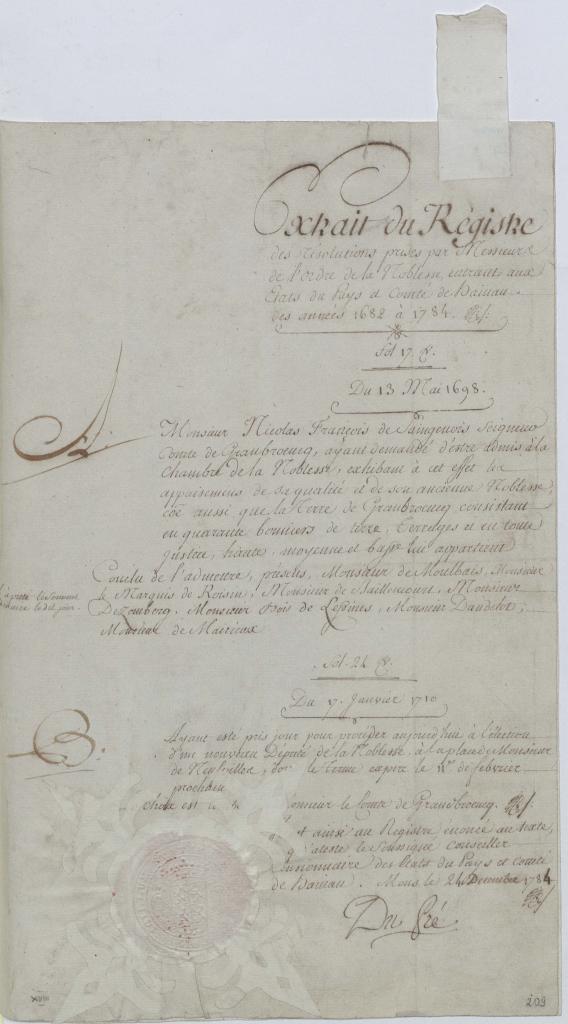 Extrait du Régistre
des résolutions prises par Messieurs
de l'ordre de la Noblesse, entrant aux
Etats du Pays et Comté de Hainau
des années 1682 à 1784.
fol. 17.
Du 13 Mai 1698.
A.
Monsieur Nicolas François de Saingenois Seigneur
Comte de Grandbroeucq, ayant demandé d'estre admis à la
Chambre de la Noblesse, exhibant à cet effet les
appaisemens de sa qualité et de son ancienne Noblesse,
côe aussi que la Terre de Grandbroeucq consistant
en quarante bonniers de terre, Terrages et en toute
justice, haute, moyenne et basse lui appartient
Conclu de l'admettre, présens, Monsieur de Moulbais, Monsieur
le Marquis de Roisin, Monsieur de Baillencourt, Monsieur
Dezomberg, Monsieur Frois de Lessines, Monsieur Dandelot,
Monsieur de Mairieux
le dit jour.
fol. 24
Du 17. Janvier 1710
B.
Ayant esté pris jour pour procéder aujourd'hui à l'élection
d'un nouveau Député de la Noblesse à la place de Monsieur
de le terme expire le 1er de febvrier
prochain
choix est le Comte de Grandbroeucq.
ainsi au Registre énoncé au texte,
atteste le soussigné conseiller
pensionnaire des Etats du Pays et Comté
de Hainau. Mons, le 24 Decembre 1784
Du Pré
XVIII
209